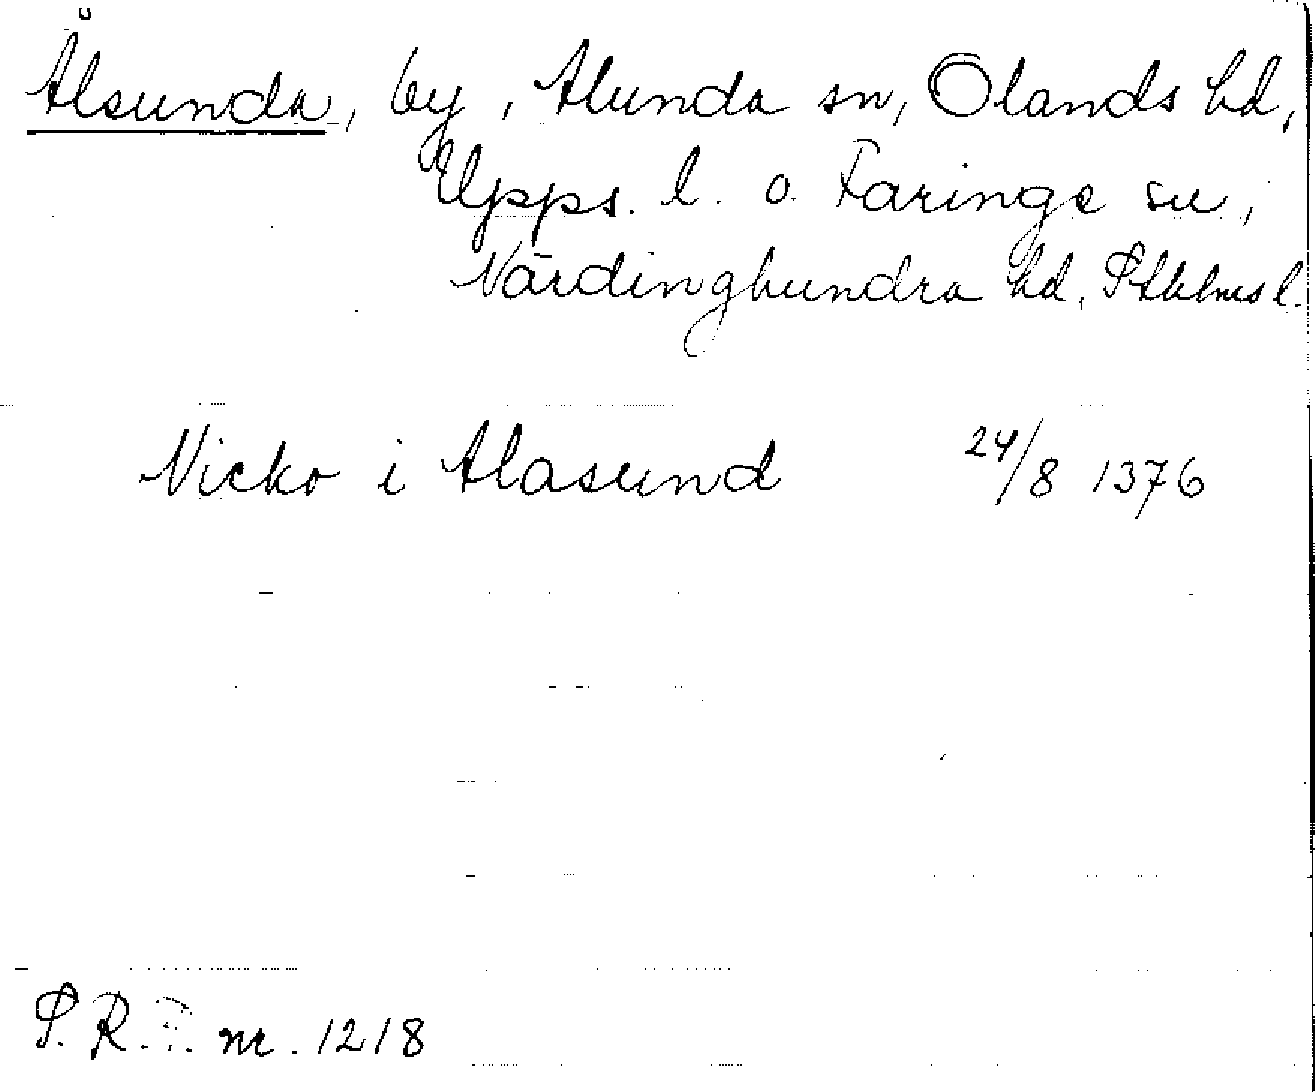 Ålsunda, by, Alunda sn, Olands hd,
Upps. l. o. Faringe sn,
Närdinghundra hd, Sthlms l.
Nicko i Alasund 24/8 1376
S. R. P. nr. 1218